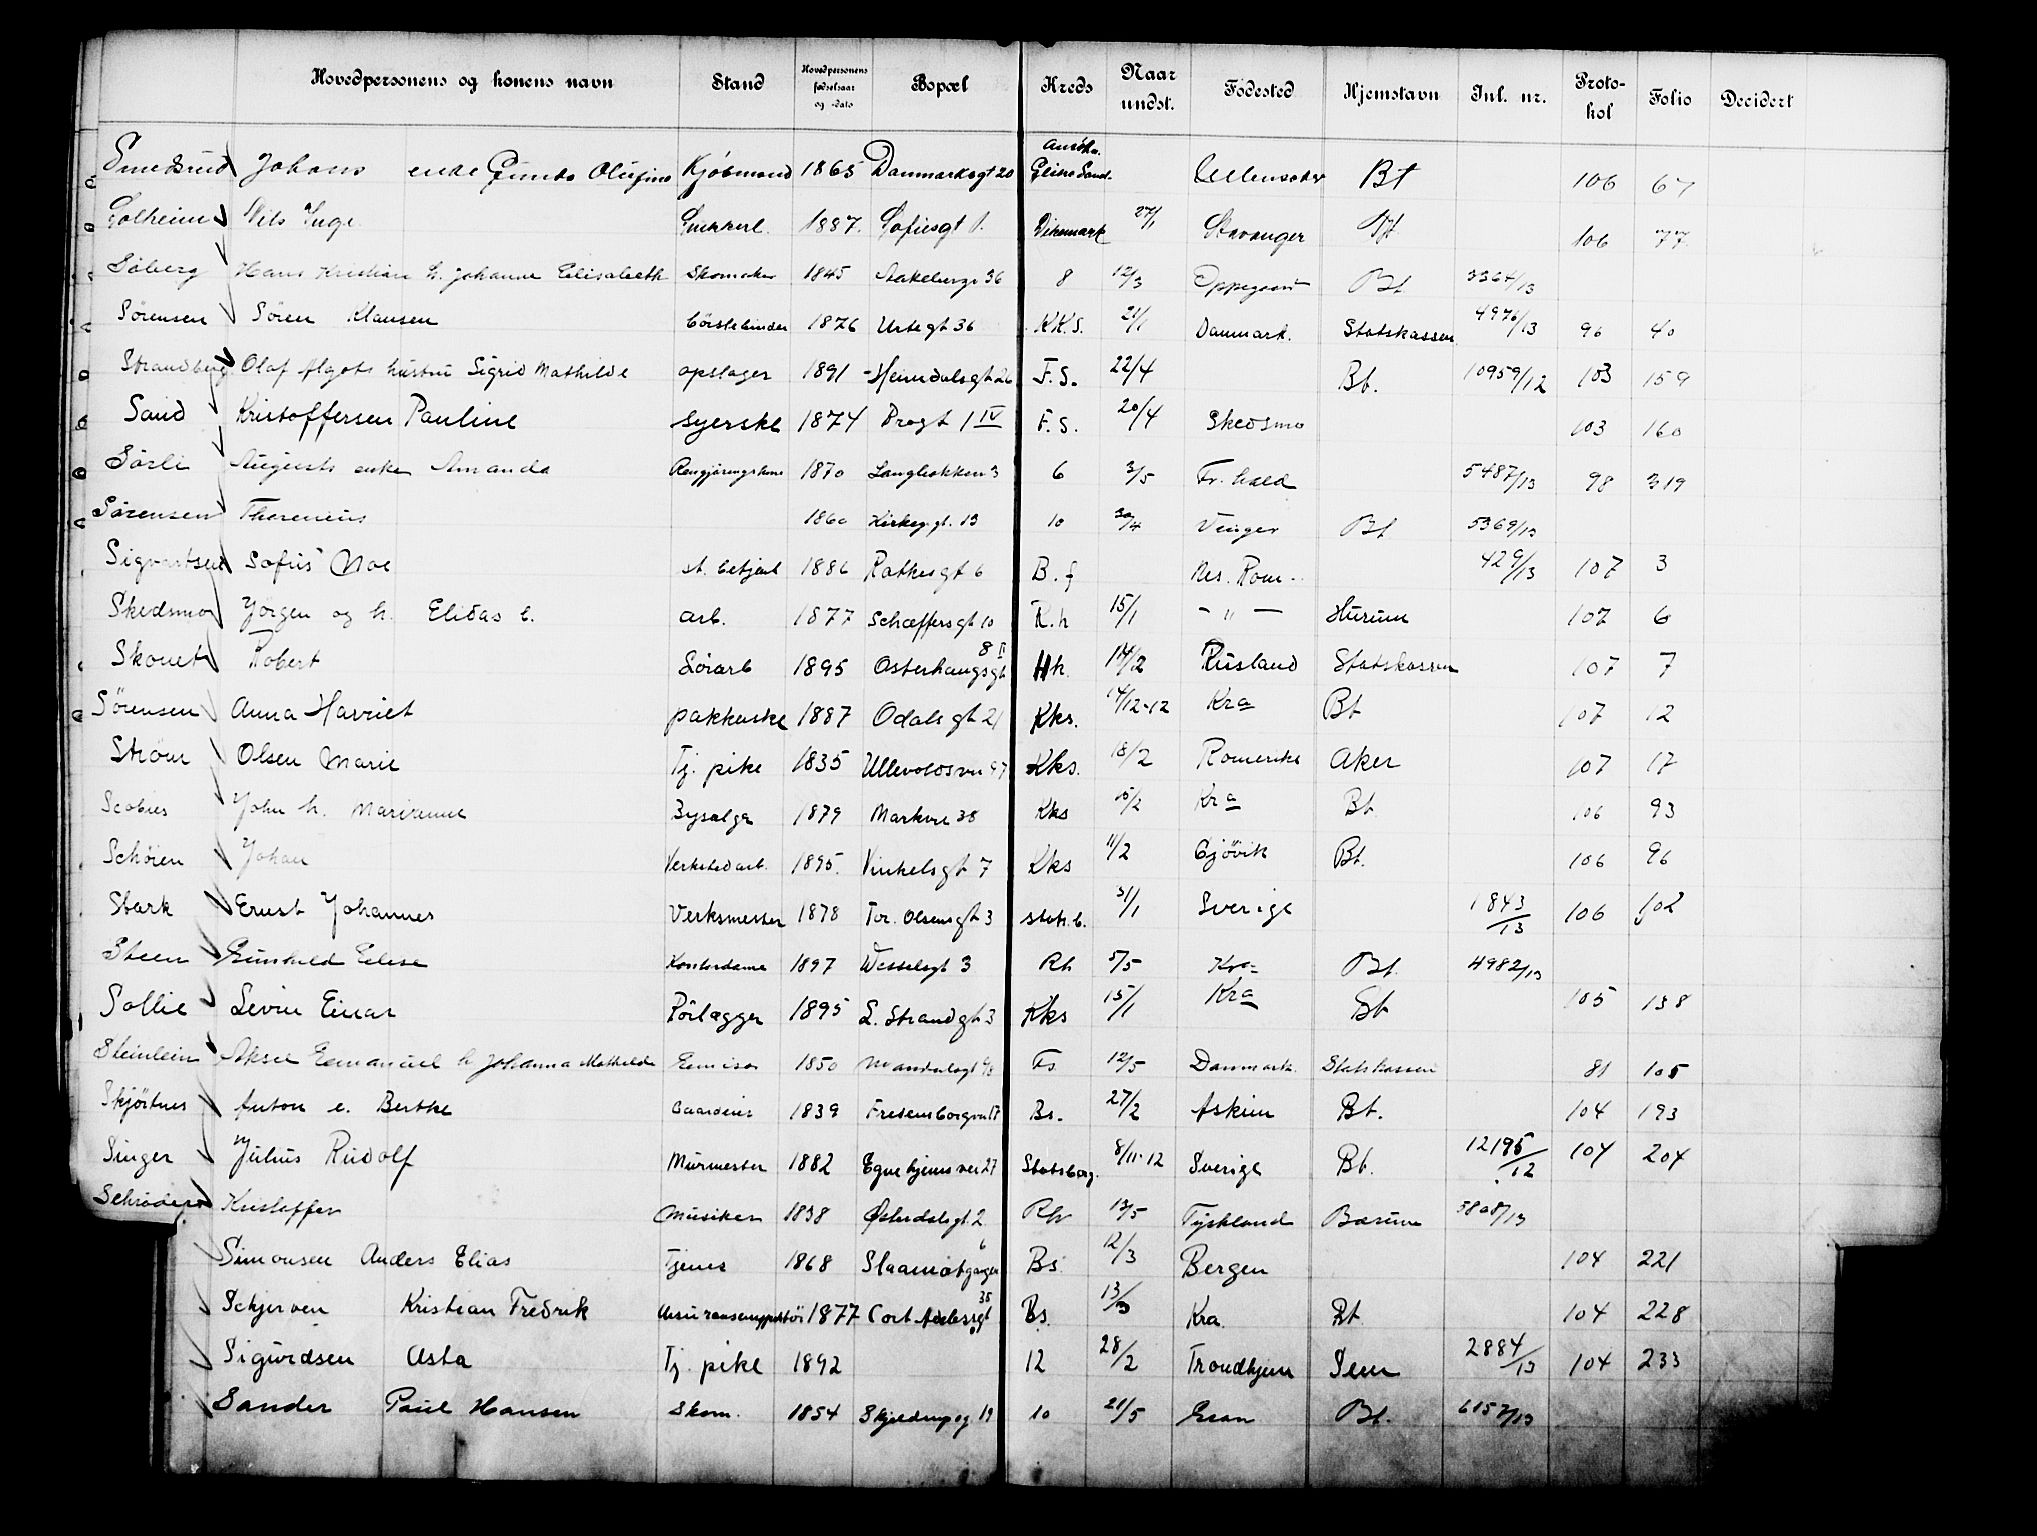 Hovedpersonens og konens navn Stand Hovedpersonens fødselsaar og -dato Bopæl Kreds Naar undst. Fødested Hjemstavn Jnl. nr. Protokol Folio Decidert
Smedsrud Johans enke Gunda Olufine Kjøbmand 1865 Danmarksgt 20 Ullensaker Bt 106 67
Solheim Nils Inge Snekkerl. 1887. Sofiesgt 1. Dikemark 27/1 Stavanger Bt 106 77
Søberg Hans Kristian h. Johanne Elisabeth Skomaker 1845 36 8 12/3 Oppegaard Bt 3364/13
Sørensen Søren Klausen børstebinder 1876 Urtegt 36 KK.S. 21/1 Danmark. Statskassen 4976/13 96 40
Strandberg Olaf Algots hustru Sigrid Mathilde opslager 1891 Heimdalsgt 26 F.S. 22/4 Bt. 10959/12 103 159
Sand Kristoffersen Pauline syerske 1874 Brogt 1 IV F.S. 20/4 Skedsmo 103 160
Sørli Augusts enke Amanda Rengjøringskone 1870 Langløkken 3 6 3/5 Fr. hald 5487/13 98 319
Sørensen Thorenius 1860 Kirkeg.gt. 13 10 30/4 Vinger Bt 5369/13
Sigvartsen Sofus Moe st. betjent 1886 Rathkesgt 6 B.f Nes. Rom. 429/13 107 3
Skedsmo Jørgen og h. Elidas E. arb. 1877 Schæffersgt 10 R.h 15/1 - " - Hurum 107 6
Skouet Robert Søiarb 1895 Osterhausgt 8 II Hk. 14/2 Rusland Statskassen 107 7
Sørensen Anna Harriet pakkerske 1887 Odals gt 21 Kks. 4/12-12 Kra Bt 107 12
Strøm Olsen Marie Tj. pike 1835 Ullevoldsvn 97 Kks. 18/2 Romerike Aker 107 17
Scobies John h. Marienne Bysælger 1879 Markvn 38 Kks 15/2 Kra Bt. 106 93
Schøien Johan Verkstedarb. 1895. Vinkelsgt 7 Kks 11/2 Gjøvik Bt. 106 96
Stark Ernst Johannes Verksmester 1878 Tor. Olsensgt 3 Stats.b. 31/1 Sverige 1843/13 106 102
Steen Gunhild Elise Kontordame 1897 Wesselsgt 3 Rh 5/5 Kra Bt. 4982/13
Sollie Levin Einar Rørlægger 1895 L. Strandgt 3 Kks 15/1 Kra Bt 105 138
Steinlein Aksel Emanuel h Johanna Mathilde 1850 Fs. 12/5 Danmark. Statskassen 81 105
Skjørtnes Anton e. Berthe Gaardeier 1839 Fredensborgvn 17 Bs. 27/2 Askim Bt. 104 193
Singer Julius Rudolf Murmester 1882 Egnehjemsvei 27 Statsborg. 8/11-12 Sverige Bt. 12195/12 104 204
Schrøder Kristoffer Musiker 1838 Østerdalsgt. 2 Rh 13/5 Tyskland Bærum 3808/13
Simonsen Anders Elias Tjener 1868 6 Bs 12/3 Bergen 104 221
Schjerven Kristian Fredrik 1877 Cort Adelersgt 35 Bs. 13/3 Kra. Bt 104 228
Sigurdsen Asta Tj. pike 1892 12 28/2 Trondhjem Sem 2884/13 104 233
Sander Paul Hansen Skom. 1854 Skjeldrupsg 19 10 21/5 Gran Bt. 6157/13